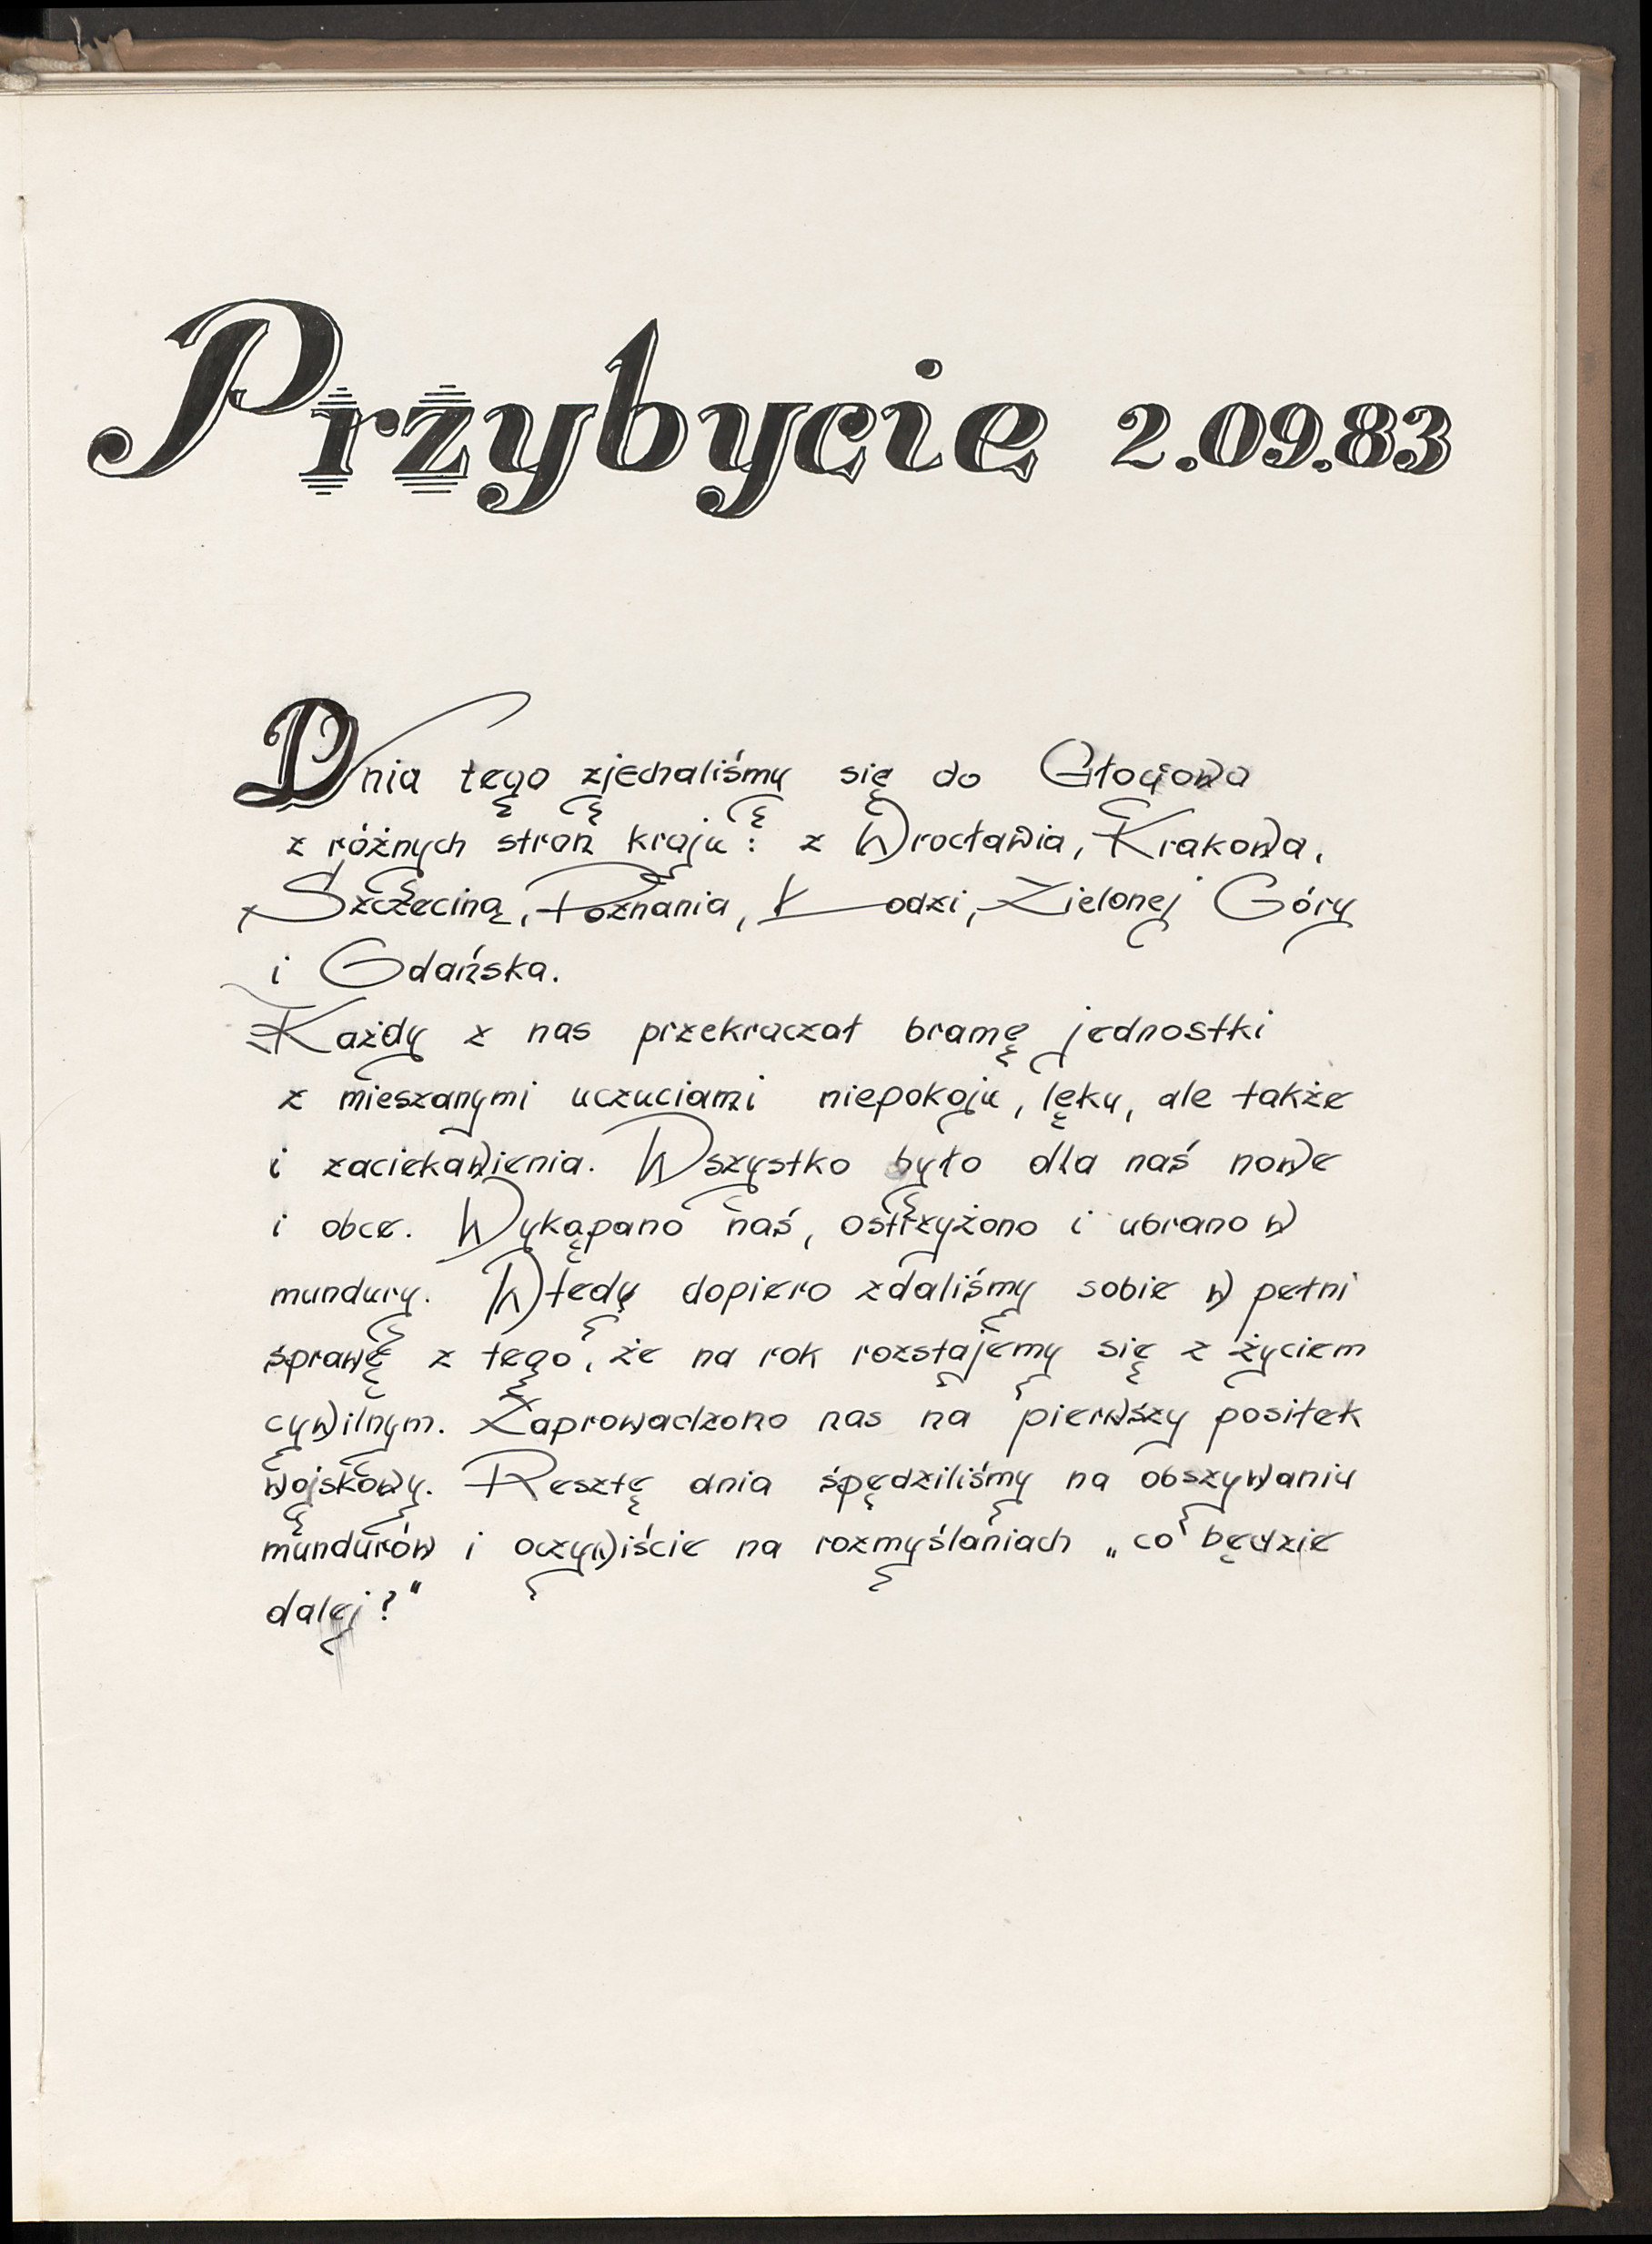 Przybycie 2.09.83
Dnia tego zjechaliśmy się do Głogowa
z różnych stron kraju: z Wrocławia, Krakowa,
Szczecina, Poznania, Łodzi, Zielonej Góry
i Gdańska.
Każdy z nas przekraczał bramę jednostki
z mieszanymi uczuciami niepokoju, lęku, ale także
i zaciekawienia. Wszystko było dla nas nowe
i obce. Wykąpano nas, ostrzyżono i ubrano w
mundury. Wtedy dopiero zdaliśmy sobie w pełni
sprawę z tego, że na rok rozstajemy się z życiem
cywilnym. Zaprowadzono nas na pierwszy posiłek
wojskowy. Resztę dnia spędziliśmy na obszywaniu
mundurów i oczywiście na rozmyślaniach „co będzie
dalej?"